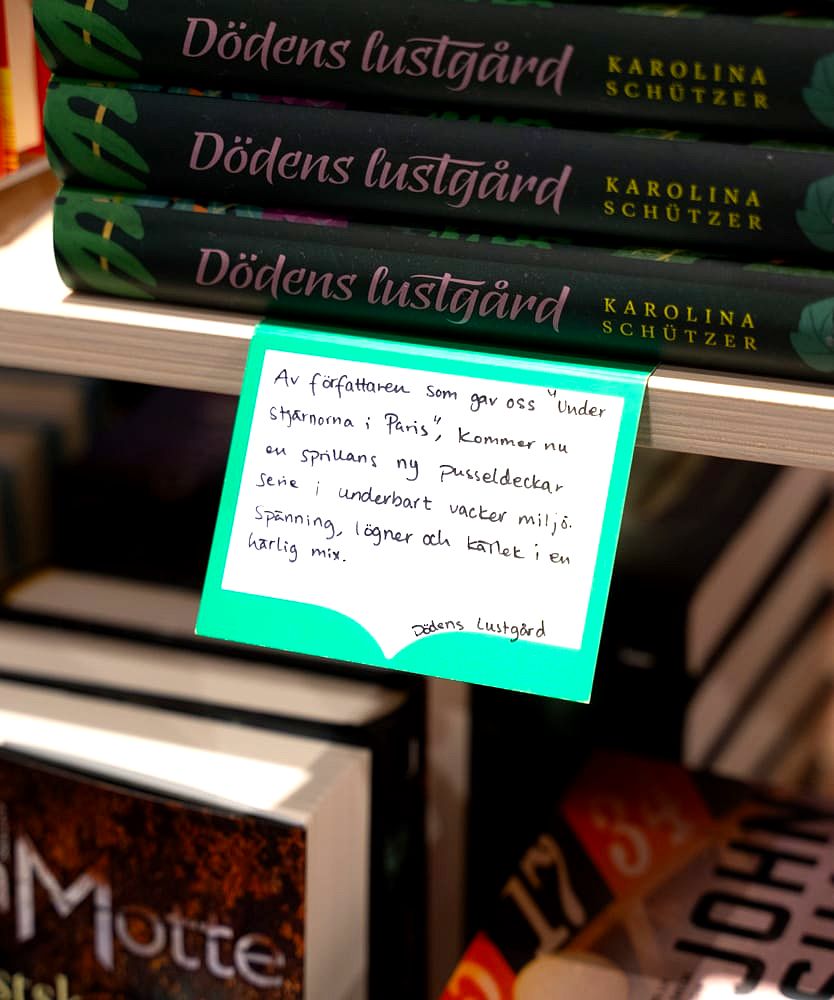 Dödens lustgård KAROLINA
SCHÜTZER
Dödens lustgård KAROLINA
SCHÜTZER
Dödens lustgård KAROLINA
SCHÜTZER
Av författaren som gav oss "Under
stjärnorna i Paris", kommer nu
en sprillans ny pusseldeckar
serie i underbart vacker miljö.
Spänning, lögner och kärlek i en
härlig mix.
Dödens Lustgård
Motte
17
34
JOHN